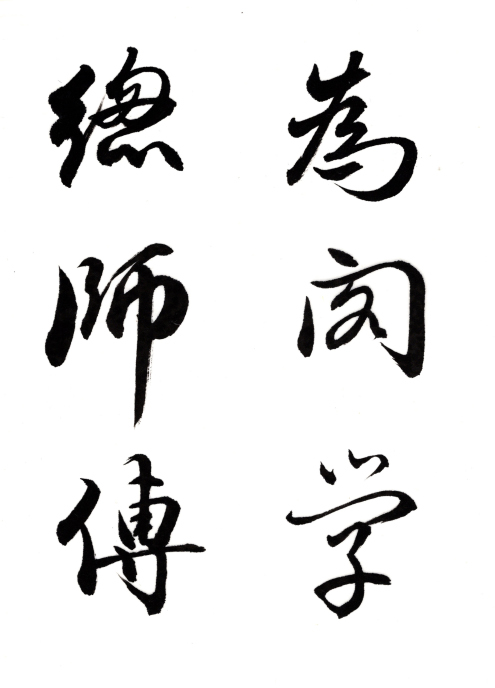 為閣学
總師傅